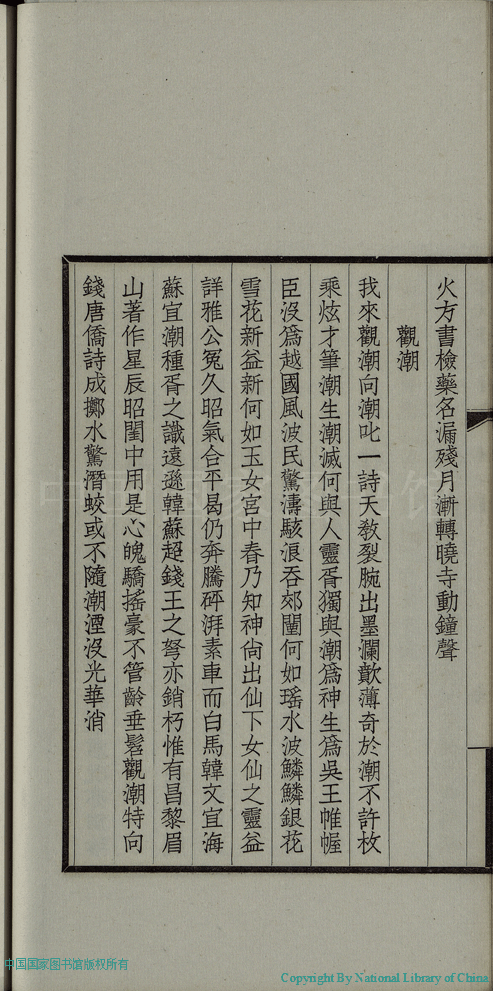 火方書檢藥名漏殘月漸轉曉寺動鐘聲
觀潮
我來觀潮向潮叱一詩天敎裂腕出墨瀾歕薄奇於潮不許枚
乘炫才筆潮生潮滅何與人靈胥獨與潮爲神生爲吳王帷幄
臣沒爲越國風波民驚濤駭浪吞郊闉何如瑤水波鱗鱗銀花
雪花新益新何如玉女宮中春乃知神尙出仙下女仙之靈益
詳雅公冤久昭氣合平曷仍奔騰砰湃素車而白馬韓文宜海
蘇宜潮種胥之識遠遜韓蘇超錢王之弩亦銷朽惟有昌黎眉
山著作星辰昭閨中用是心魄驕搖豪不管齡垂髫觀潮特向
錢唐僑詩成擲水驚潛蛟或不隨潮湮沒光華消
中国国家图书馆版权所有
Copyright By National Library of China